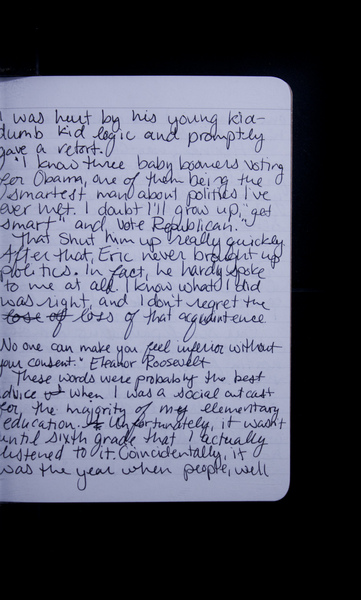 I was hurt by his young kid-
dumb kid logic and promptly
gave a retort.
"I know three baby boomers voting
for Obama, one of them being the
smartest man about politics I've
ever met. I doubt I'll grow up, "get
smart" and vote Republican."
That shut him up really quickly.
After that, Eric never brought up
politics. In fact, he hardly spoke
to me at all. I know what I did
was right, and I don't regret the
lose of loss of that acquaintence
No one can make you feel inferior without
your consent." Eleanor Roosevelt
These words were probably the best
advice when I was a social outcast
for the majority of my elementary
education. Unfortunately, it wasn't
until sixth grade that I actually
listened to it. Coincidentally, it
was the year when people, well